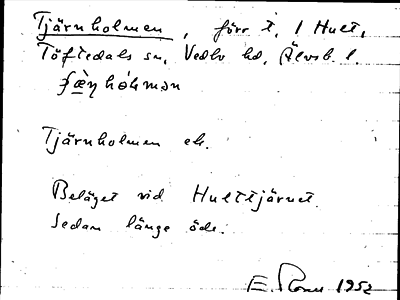 Tjärnholmen, förr t. i Hult,
Töftedals sn, Vedbo hd, Älvsb. l.
Tjärnholmen ek.
Beläget vid Hulttjärnet.
Sedan länge öde.
E. 1952